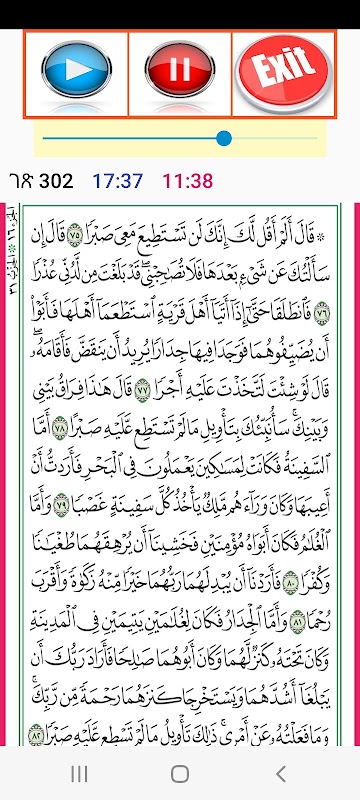 Exit
ገጽ 302 17:37 11:38
الجزء ١٦
الحزب ٣١
۞ قَالَ أَلَمْ أَقُل لَّكَ إِنَّكَ لَن تَسْتَطِيعَ مَعِىَ صَبْرًا ٧٥ قَالَ إِن
سَأَلْتُكَ عَن شَىْءٍۭ بَعْدَهَا فَلَا تُصَٰحِبْنِى ۖ قَدْ بَلَغْتَ مِن لَّدُنِّى عُذْرًا
٧٦ فَٱنطَلَقَا حَتَّىٰٓ إِذَآ أَتَيَآ أَهْلَ قَرْيَةٍ ٱسْتَطْعَمَآ أَهْلَهَا فَأَبَوْا۟
أَن يُضَيِّفُوهُمَا فَوَجَدَا فِيهَا جِدَارًا يُرِيدُ أَن يَنقَضَّ فَأَقَامَهُۥ ۖ
قَالَ لَوْ شِئْتَ لَتَّخَذْتَ عَلَيْهِ أَجْرًا ٧٧ قَالَ هَٰذَا فِرَاقُ بَيْنِى
وَبَيْنِكَ ۚ سَأُنَبِّئُكَ بِتَأْوِيلِ مَا لَمْ تَسْتَطِع عَّلَيْهِ صَبْرًا ٧٨ أَمَّا
ٱلسَّفِينَةُ فَكَانَتْ لِمَسَٰكِينَ يَعْمَلُونَ فِى ٱلْبَحْرِ فَأَرَدتُّ أَنْ
أَعِيبَهَا وَكَانَ وَرَآءَهُم مَّلِكٌ يَأْخُذُ كُلَّ سَفِينَةٍ غَصْبًا ٧٩ وَأَمَّا
ٱلْغُلَٰمُ فَكَانَ أَبَوَاهُ مُؤْمِنَيْنِ فَخَشِينَآ أَن يُرْهِقَهُمَا طُغْيَٰنًا
وَكُفْرًا ٨٠ فَأَرَدْنَآ أَن يُبْدِلَهُمَا رَبُّهُمَا خَيْرًا مِّنْهُ زَكَوٰةً وَأَقْرَبَ
رُحْمًا ٨١ وَأَمَّا ٱلْجِدَارُ فَكَانَ لِغُلَٰمَيْنِ يَتِيمَيْنِ فِى ٱلْمَدِينَةِ
وَكَانَ تَحْتَهُۥ كَنزٌ لَّهُمَا وَكَانَ أَبُوهُمَا صَٰلِحًا فَأَرَادَ رَبُّكَ أَن
يَبْلُغَآ أَشُدَّهُمَا وَيَسْتَخْرِجَا كَنزَهُمَا رَحْمَةً مِّن رَّبِّكَ ۚ
وَمَا فَعَلْتُهُۥ عَنْ أَمْرِى ۚ ذَٰلِكَ تَأْوِيلُ مَا لَمْ تَسْطِع عَّلَيْهِ صَبْرًا ٨٢